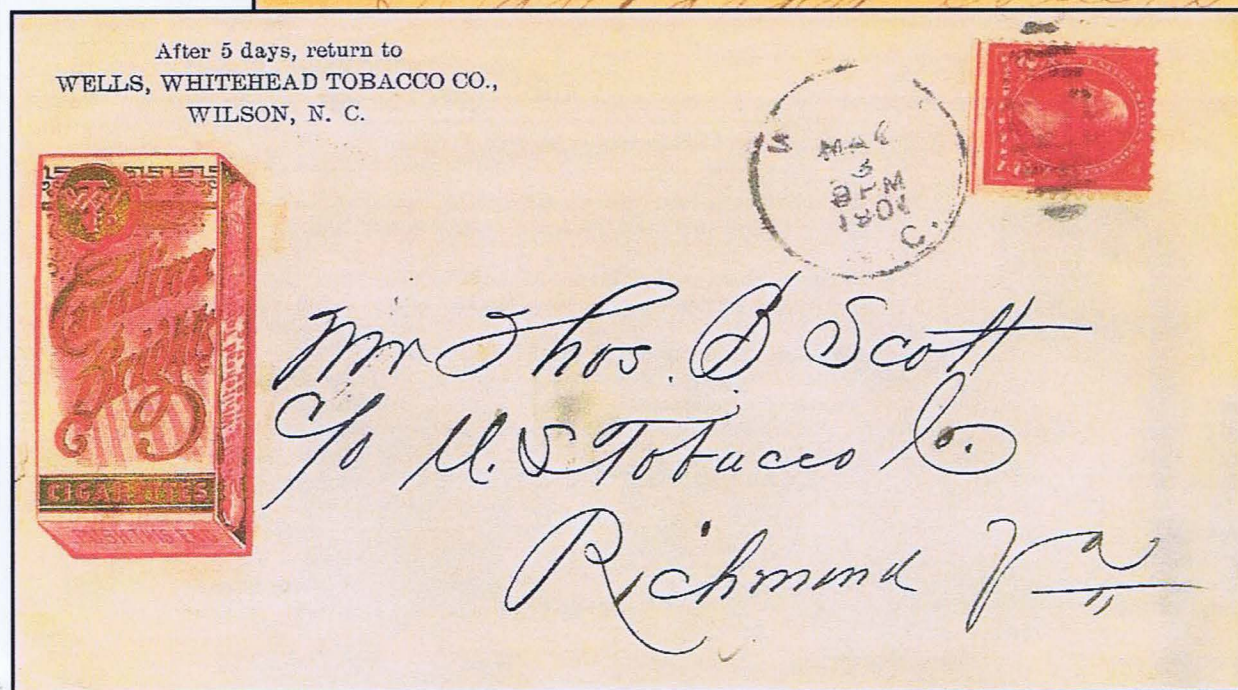 After 5 days, return to
WELLS, WHITEHEAD TOBACCO CO.,
WILSON, N. C.
MAR
3
8PM
C.
Carolina
Brights
CIGARETTES
Mr Thos. B Scott
c/o U. S Tobacco Co.
Richmond Va